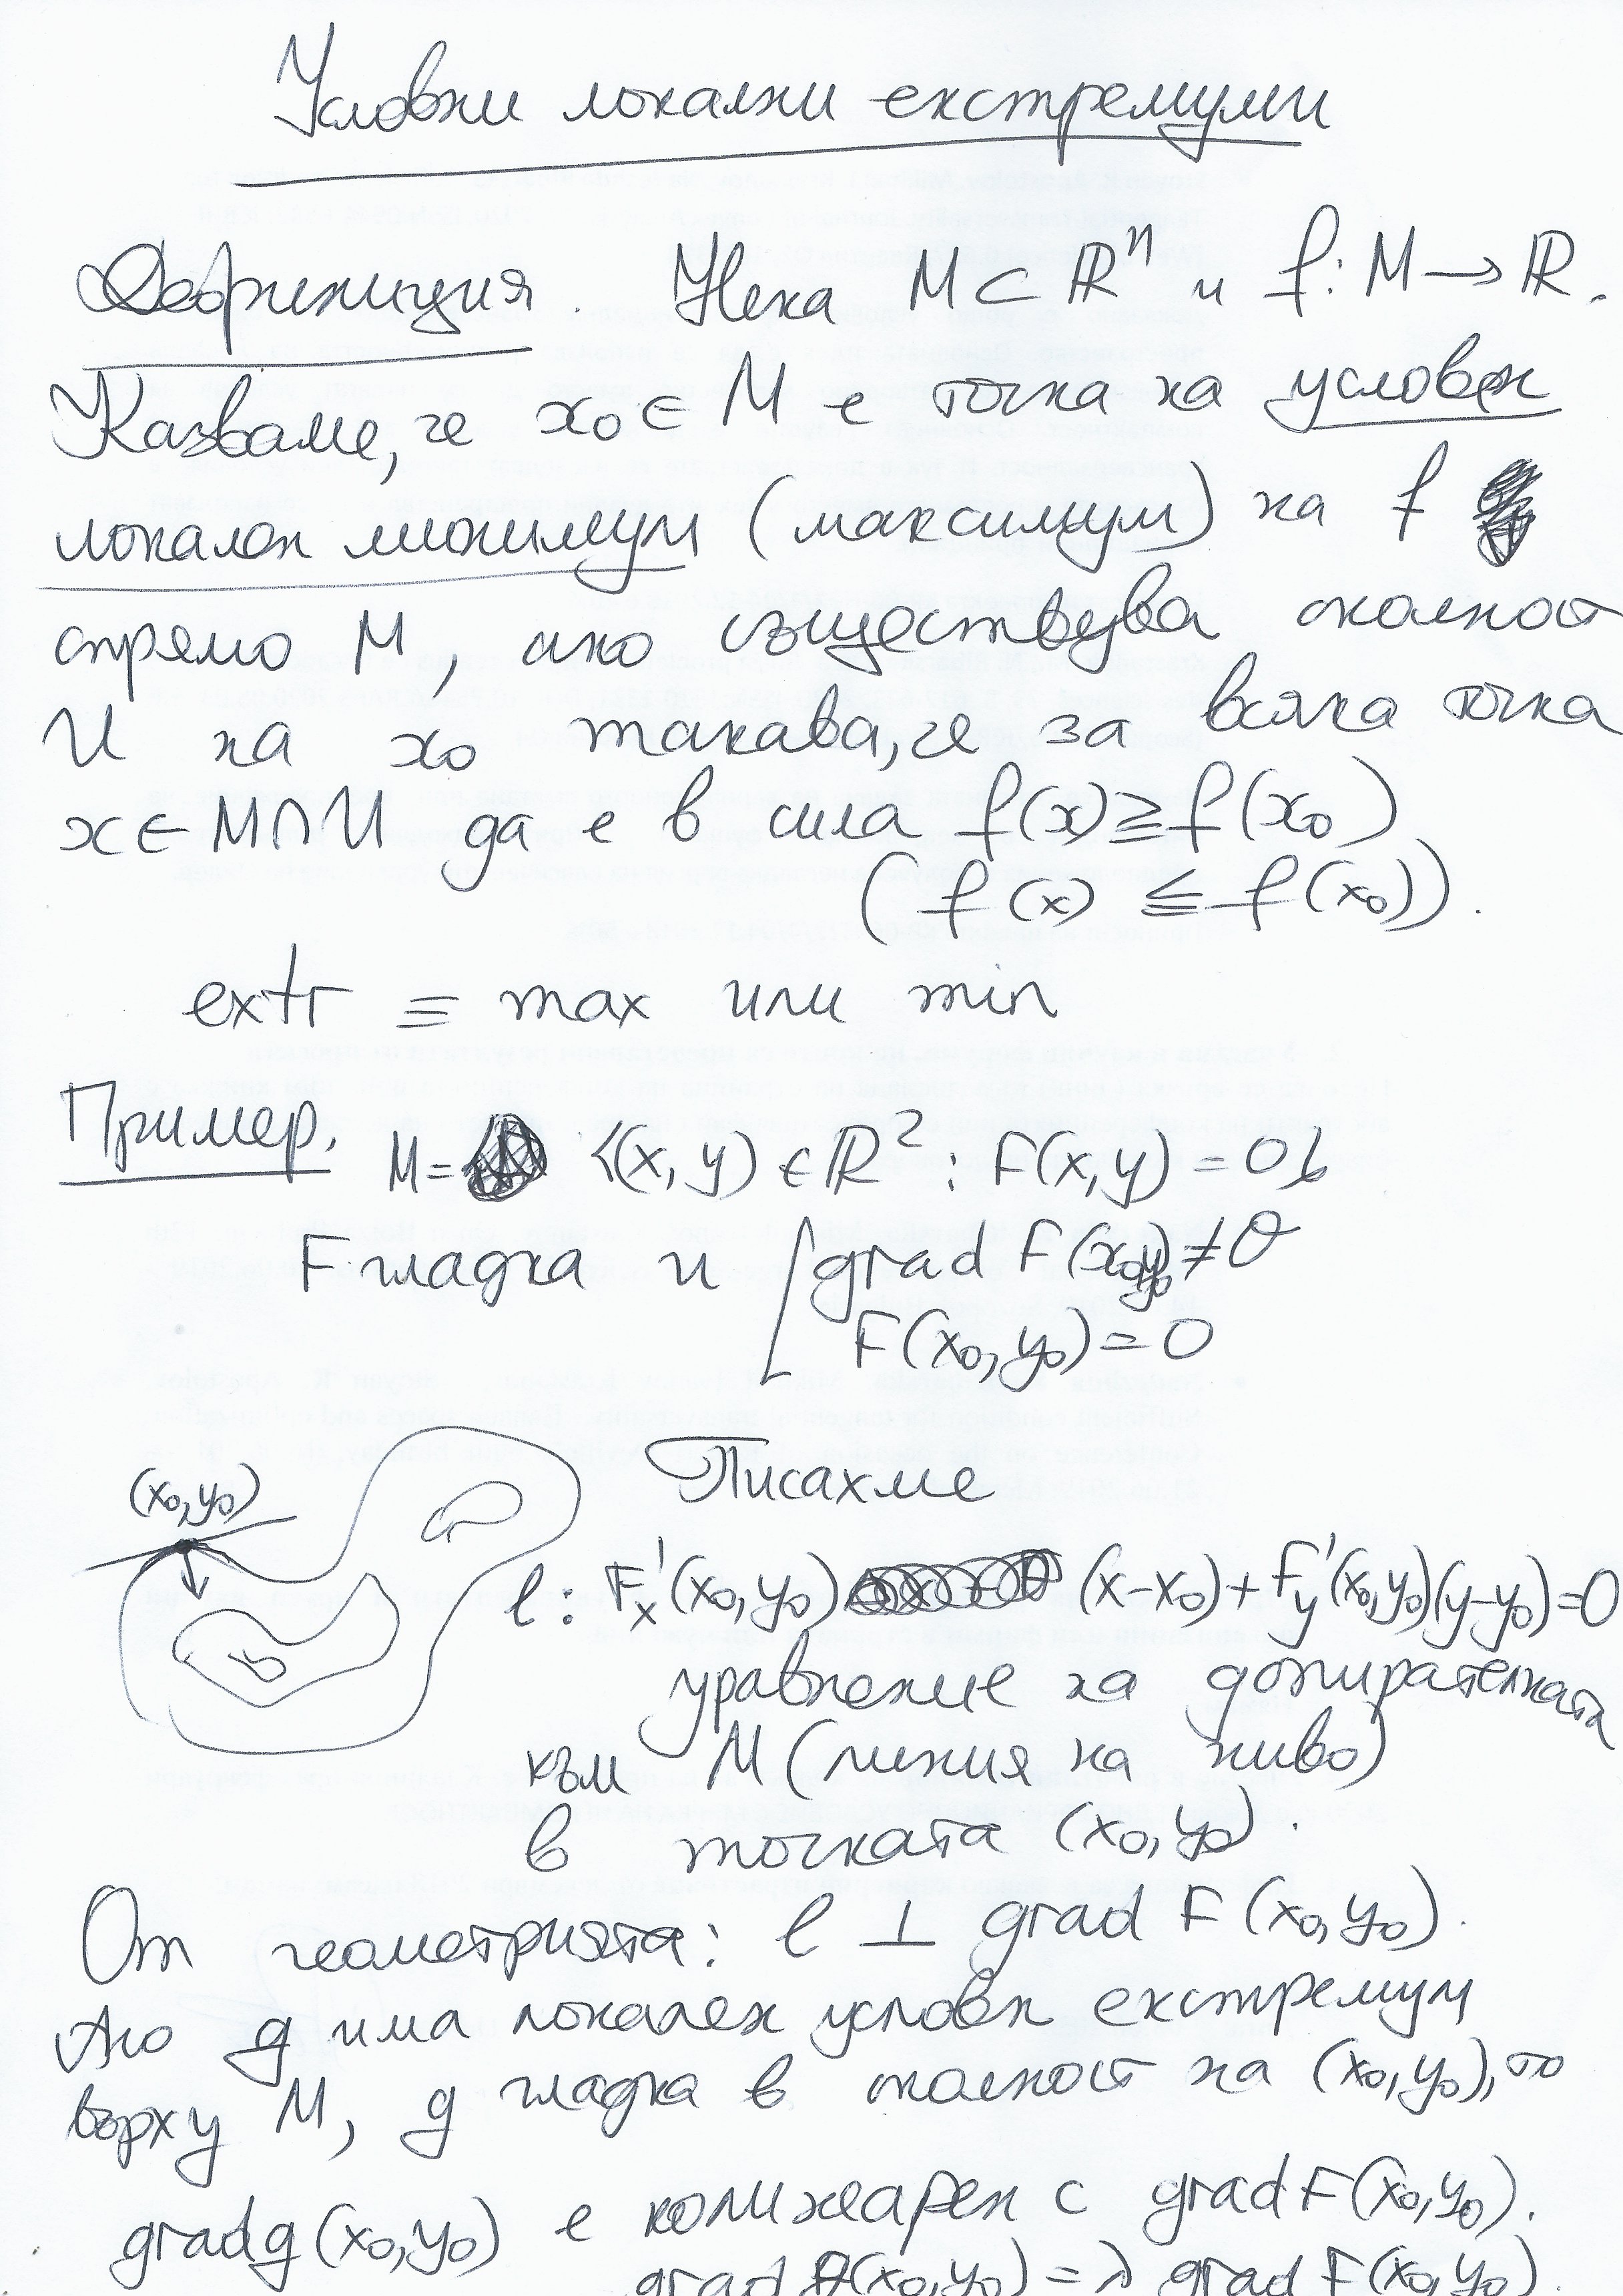 Условни локални екстремуми
Дефиниция. Нека M ⊂ ℝⁿ и f: M → ℝ.
Казваме, че x₀ ∈ M е точка на условен
локален минимум (максимум) на f
спрямо M, ако съществува околност
U на x₀ такава, че за всяка точка
x ∈ M ∩ U да е в сила f(x) ≥ f(x₀)
(f(x) ≤ f(x₀)).
extr ≡ max или min
Пример. M = {(x, y) ∈ ℝ² : F(x, y) = 0}
F гладка и grad F(x₀, y₀) ≠ 0
F(x₀, y₀) = 0
(x₀, y₀)
Писахме
l: F'ₓ(x₀, y₀) (x-x₀) + F'ᵧ(x₀, y₀)(y-y₀) = 0
уравнение на допирателната
към M (линия на ниво)
в точката (x₀, y₀).
От геометрията: l ⊥ grad F(x₀, y₀).
Ако g има локален условен екстремум
върху M, g гладка в околност на (x₀, y₀), то
grad g(x₀, y₀) е колинеарен с grad F(x₀, y₀).
grad g(x₀, y₀) = λ grad F(x₀, y₀).